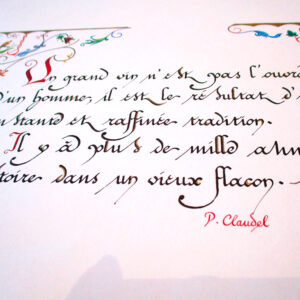 Un grand vin n'est pas l'ouvr
d'un homme, il est le résultat d'
nstante et raffinée tradition.
Il y a plus de mille ann
toire dans un vieux flacon.
P. Claudel